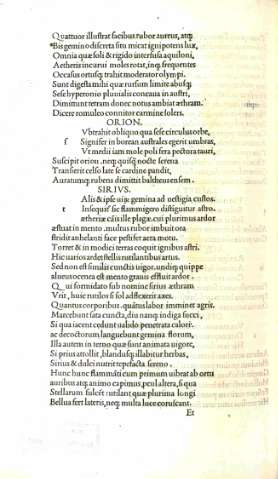 Quattuor illustrat facibus rubor aureus, atq;
Bis gemino discreta situ micat igni potens lux,
Omnia quæ soli & rigido intersusa aquiloni,
Aetheris incani moles rotat, inq; frequentes
Occasus ortusq; trahit moderator olympi.
Sunt digesta mihi quæ rursum limite abusq;
Sese hyperonio pluvialis conuexa in austri,
Dimittunt tetram donec notus ambiat æthram.
Dicere romuleo connitor carmine solers.
ORION.
Vbtrahit obliquo qua sese circulus orbe,
f Signifer in boream australes egerit umbras,
Vt medii iam mole poli fera pectora tauri,
Suscipit orion. neq; quisq; nocte serena
Transferit celso late se cardine pandit,
Auratumq; rubens dimittit baltheus ensem.
SIRIVS.
Alis & ipse uiæ gemina ad uestigia custos.
t Insequitur sic flammigero distiguitur astro.
ætheriæ cæsis ille plagæ, cui plurimus ardor
æstuat in mento, multus rubor imbuit ora
stridit anhelanti face pestifer aera motu.
Torret & in modicis terras coquit ignibus astri.
Hic uarios ardet stellis rutilantibus artus.
Sed non est similis cunctis uigor. undiq; quippe
aluteuocerna est mento grauis effluit ardor.
Qui formidato sub nomine sirius æthram
Vrit, huic rutilos si sol adflexerit axes.
Quantus corporibus, quatus labor imminet agris.
Marcebunt sata cuncta, diu nanq; indiga succi,
Si qua iacent cedunt subdo penetrata calori.
ac decoctorum languebunt germina florum,
Illa autem in terno quæ sunt animata uigore,
Si prius attollit, blandusq; illabitur herbas,
Sirius & dulci nutrit tepefacta sereno.
Hunc hunc flammisti cum primum uibrat ab ortu
auribus atq; animo capimus, peculatera, si qua
Stellarum fulcit rutilant quæ plurima longi
Bellua fert lateris, neq; multa luce coruscant.
Et